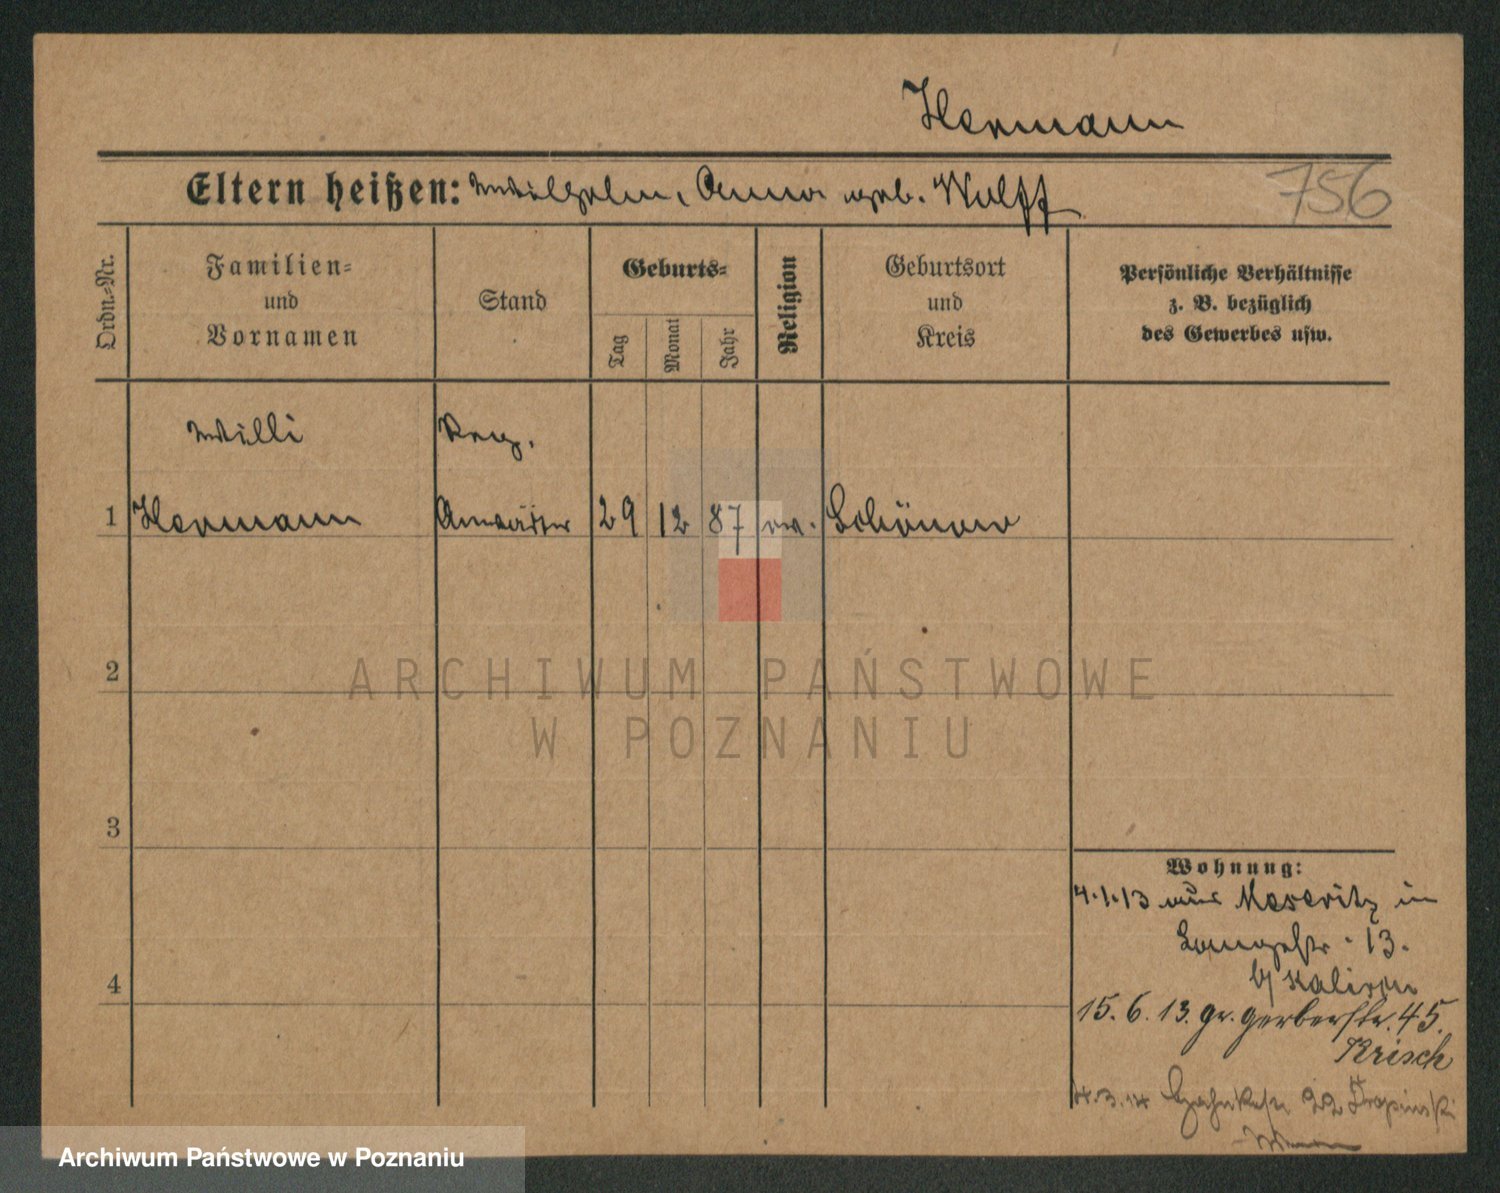 Hermann
Eltern heißen: Wilhelm, Anna geb. Wolff
756
Ordn.-Nr.
Familien-
und
Vornamen
Stand
Geburts-
Tag
Monat
Jahr
Religion
Geburtsort
und
Kreis
Persönliche Verhältnisse
z. B. bezüglich
des Gewerbes usw.
Willi
Reg.
1 Hermann Anwärter 29 12 87 ev. Schönow
2
ARCHIWUM PAŃSTWOWE
W POZNANIU
3
4
Wohnung:
4.1.13 aus Meseritz in
Langestr. 13.
b/ Kaliske
15. 6. 13. gr. gerberstr. 45.
Krisch
4.3.14 22
Archiwum Państwowe w Poznaniu